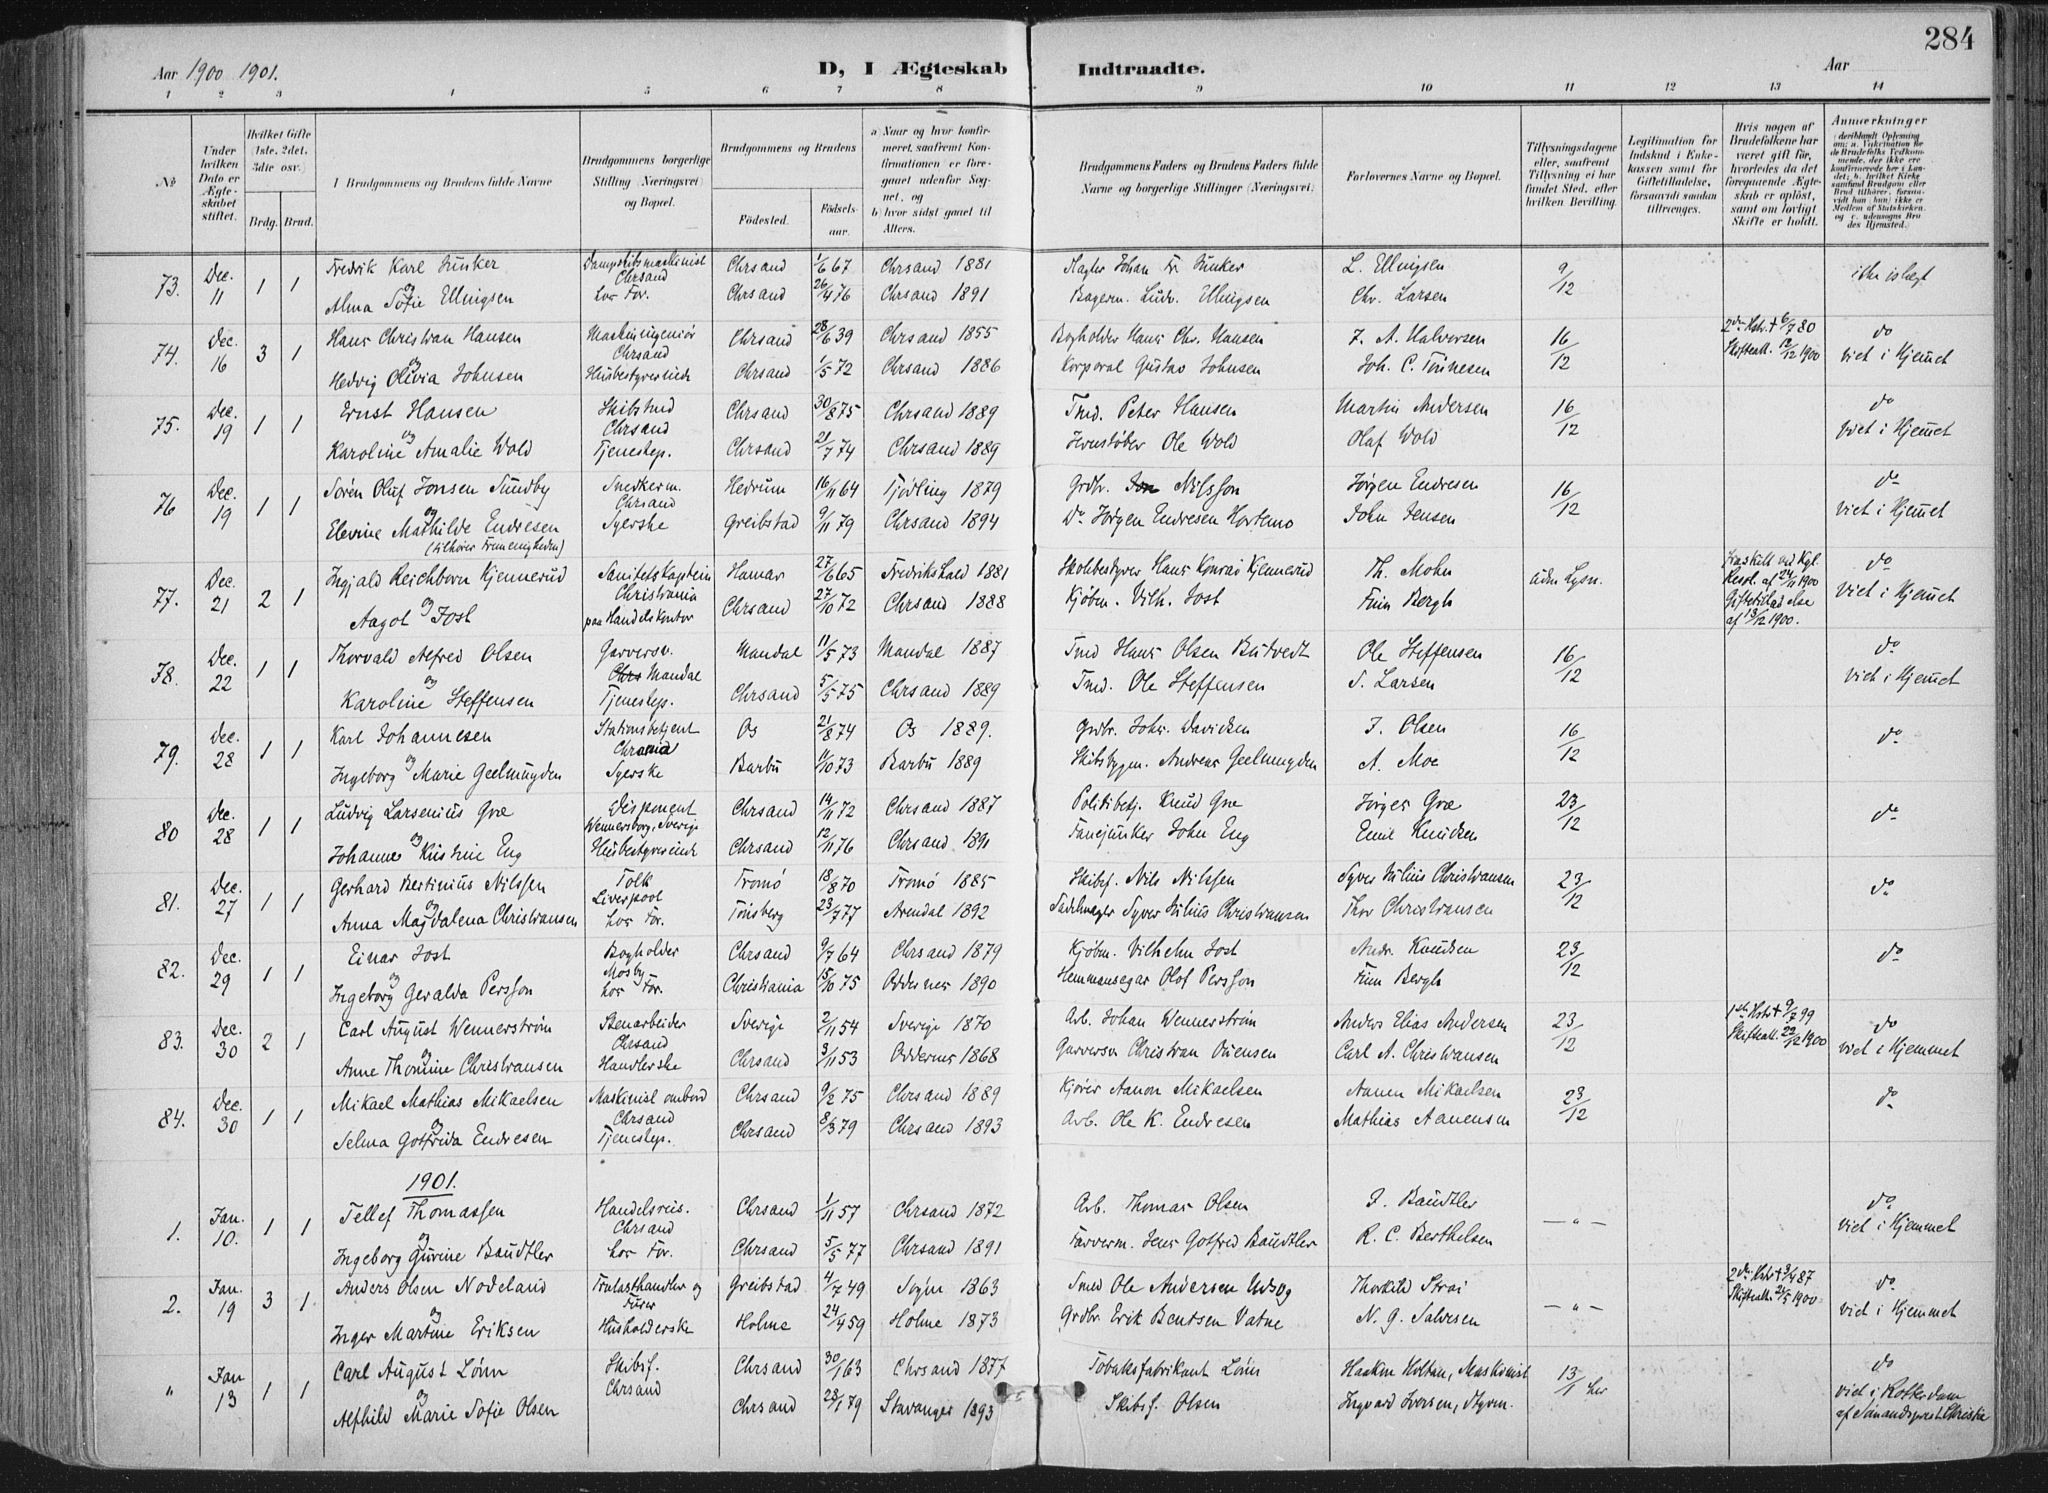 284
Aar 1900 1901.
D, I Ægteskab Indtraadte.
Aar
1 2 3 4 5 6 7 8 9 10 11 12 13 14
№
Under hvilken Dato er Ægteskabet stiftet.
Hvilket Gifte (1ste, 2det, 3die osv.)
Brdg. Brud.
I Brudgommens og Brudens fulde Navne
Brudgommens borgerlige Stilling (Næringsvei) og Bopæl.
Brudgommens og Brudens
Fødested. Fødselsaar.
a) Naar og hvor konfirmeret, saafremt Konfirmationen er foregaaet udenfor Sognet, og
b) hvor sidst gaaet til Alters.
Brudgommens Faders og Brudens Faders fulde Navne og borgerlige Stillinger (Næringsvei).
Forlovernes Navne og Bopæl.
Tillysningsdagene eller, saafremt Tillysning ei har fundet Sted, efter hvilken Bevilling.
Legitimation for Indskud i Enkekassen samt for Giftetilladelse, forsaavidt saadan tiltrænges.
Hvis nogen af Brudefolkene har været gift før, hvorledes da det foregaaende Ægteskab er opløst, samt om lovligt Skifte er holdt.
Anmærkninger
73. Dec. 11 1 1 Fredrik Karl Junker Dampskibsmaskinist Chrsand Chrsand 1/6 67 Chrsand 1881 Slagter Johan Fr. Junker L. Ellingsen 9/12
og Alma Sofie Ellingsen hos For. Chrsand 26/4 76 Chrsand 1891 Bagerm. Ludv. Ellingsen Chr. Larsen
74. Dec. 16 3 1 Hans Christian Hansen Maskiningeniør Chrsand Chrsand 28/6 39 Chrsand 1855 Bogholder Hans Chr. Hansen J. A. Halvorsen 16/12 2den Hstr. + 6/7 80 Skifteatt. 12/12 1900 do viet i Hjemmet
og Hedvig Olivia Johnsen Husbestyrerinde Chrsand 1/5 72 Chrsand 1886 Korporal Gustav Johnsen Joh. C. Tönnesen
75. Dec. 19 1 1 Ernst Hansen Skibstmd Chrsand Chrsand 30/8 75 Chrsand 1889 Tmd. Peter Hansen Martin Andersen 16/12 do viet i Hjemmet
og Karoline Amalie Wold Tjenestep. Chrsand 21/7 74 Chrsand 1889 Jernstøber Ole Wold Olaf Wold
76 Dec. 19 1 1 Sören Oluf Jonsen Sundby Snedkerm. Chrsand Hedrum 16/11 64 Tjödling 1879 Grdbr. Nilsson Jörgen Endresen 16/12 do viet i Hjemmet
og Elevine Mathilde Endresen Syerske Greibstad 9/11 79 Chrsand 1894 Do Jörgen Endresen Hortemo John Jensen
(tilhører Frimenigheden)
77. Dec. 21 2 1 Ingjald Reichborn Kjennerud Sanitetskaptein Christiania Hamar 27/6 65 Fredrikshald 1881 Skolebestyrer Hans Konrad Kjennerud Th. Mohn uden Lysn. Fraskilt ved Kgl. Resol. af 24/11 1900 Giftetilladelse af 13/12 1900. do viet i Hjemmet
og Aagot Jost paa Handelskontor Chrsand 27/10 72 Chrsand 1888 Kjöbm. Vilh. Jost Finn Bergh
78. Dec. 22 1 1 Thorvald Alfred Olsen Garversv. Mandal Mandal 11/5 73 Mandal 1887 Tmd Hans Olsen Ole Steffensen 16/12 do viet i Hjemmet
og Karoline Steffensen Tjenestep. Chrsand 5/5 75 Chrsand 1889 Tmd. Ole Steffensen S. Larsen
79. Dec. 28 1 1 Karl Johannesen Stationsbetjent Chrania Os 21/8 74 Os 1889. Grdbr. Johs. Davidsen J. Olsen 16/12 do
og Ingeborg Marie Geelmuyden Syerske Barbu 11/10 73 Barbu 1889 Skibsbygm. Andreas Geelmuyden A. Moe
80 Dec. 28 1 1 Ludvig Larsenius Gve Disponent Wennersborg, Sverige Chrsand 14/11 72 Chrsand 1887 Politibetj. Knud Gve Jörges Gve 23/12 do
og Johanne Kristine Eng Husbestyrerinde Chrsand 12/11 76 Chrsand 1891 Fanejunker John Eng Emil Knudsen
81. Dec. 27 1 1 Gerhard Bertinius Nilssen Tolk Liverpool Tromö 18/8 70 Tromö 1885 Skibsf. Nils Nilssen Syver Julius Christiansen 23/12 do
og Anna Magdalena Christiansen hos For. Tönsberg 23/7 77 Arendal 1892 Sadelmager Syver Julius Christiansen Thor Christiansen
82. Dec. 29 1 1 Einar Jost Bogholder Mosby Chrsand 9/7 64 Chrsand 1879 Kjöbm. Vilhelm Jost Andr. Knudsen 23/12 do
og Ingeborg Geralda Persson hos For. Christiania 15/10 75 Oddernes 1890 Hemmansegar Olof Persson Finn Bergh
83. Dec. 30 2 1 Carl August Wennerström Stenarbeider Chrsand Sverige 2/11 54 Sverige 1870 Arb. Johan Wennerström Anders Elias Andersen 23/12 1ste Hstr + 9/7 99 Skifteatt. 22/12 1900 do viet i Hjemmet
og Anne Thomine Christiansen Handlerske Chrsand 3/11 53 Oddernes 1868 Garversv Christian Ouensen Carl A. Christiansen
84. Dec. 30 1 1 Mikael Mathias Mikaelsen Maskinist ombord Chrsand Chrsand 9/2 75 Chrsand 1889 Kjörer Aanon Mikaelsen Aanen Mikaelsen 23/12 do
og Selma Gotfrida Endresen Tjenestep. Chrsand 8/3 79 Chrsand 1893 Arb. Ole K. Endresen Mathias Aanensen
1901.
1. Jan. 10. 1 1 Tellef Thomassen Handelsreis. Chrsand Chrsand 1/11 57 Chrsand 1872 Arb. Thomas Olsen J. Baudtler — „ — do viet i Hjemmet
og Ingeborg Gurine Baudtler hos For. Chrsand 5/5 77 Chrsand 1891 Farverm. Jens Gotfred Baudtler R. C. Berthelsen
2. Jan. 19 3 1 Anders Olsen Nodeland Trælasthandler og Greibstad 4/7 49 Sogn 1863 Tmd Ole Andersen Thorkild Strai — „ — 2den Hstr + 3/4 87 Skifteatt. 21/5 1900 do viet i Hjemmet
og Inger Martine Eriksen Husholderske Holme 24/4 59 Holme 1873 Grdbr. Erik Bentsen Vatne N. G. Salvesen
„ Jan 13 1 1 Carl August Lönn Skibsf. Chrsand Chrsand 30/1 63 Chrsand 1877 Tobaksfabrikant Lönn Haakon Holtan, Maskinist 13/1 her do viet i Rotterdam af Sömandsprest Christie
og Alfhild Marie Sofie Olsen Chrsand 28/1 79 Stavanger 1893 Skibsf. Olsen Ingvard Iversen, Styrm.